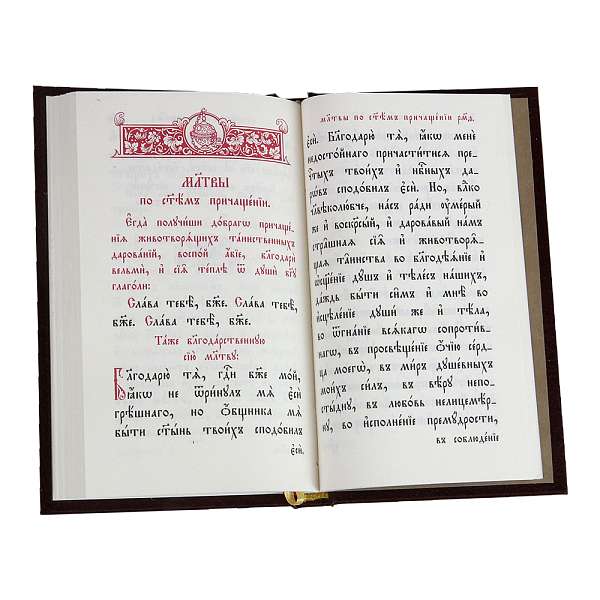 Мл҃твы
по ст҃ѣмъ причаще́нїи.
Є҆гда̀ полꙋчи́ши до́брагѡ причаще́-
нїѧ животворѧ́щихъ та́инственныхъ
дарова́нїй, воспо́й а҆́бїе, благодарѝ
ве́льми, и҆ сїѧ̑ те́плѣ ѿ дꙋшѝ бг҃ꙋ
глаго́ли:
Сла́ва тебѣ̀, бж҃е. Сла́ва тебѣ̀,
бж҃е. Сла́ва тебѣ̀, бж҃е.
Та́же благода́рственнꙋю
сїю̀ мл҃твꙋ:
Благодарю́ тѧ, гдⷭ҇и бж҃е мо́й,
ꙗ҆́кѡ не ѿри́нꙋлъ мѧ̀ є҆сѝ
грѣ́шнаго, но ѻ҆́бщника мѧ̀
бы́ти ст҃ы́нь твои́хъ сподо́билъ
є҆сѝ.
мл҃твы по ст҃ѣмъ причаще́нїи
є҆сѝ. Благодарю́ тѧ, ꙗ҆́кѡ менѐ
недосто́йнаго причасти́тисѧ пре-
чⷭ҇тыхъ твои́хъ и҆ нбⷭ҇ныхъ да-
рѡ́въ сподо́билъ є҆сѝ. Но, влⷣко
чл҃вѣколю́бче, на́съ ра́ди ᲂу҆ме́рый
же и҆ воскрⷭ҇ый, и҆ дарова́вый на́мъ
стра̑шнаѧ сїѧ̑ и҆ животворѧ́-
щаѧ та̑инства во благодѣѧ́нїе и҆
ѡ҆сщ҃е́нїе дꙋ́шъ и҆ тѣле́съ на́шихъ,
да́ждь бы́ти си̑мъ и҆ мнѣ̀ во
и҆сцѣле́нїе дꙋшѝ же и҆ тѣ́ла,
во ѿгна́нїе всѧ́кагѡ сопроти́в-
нагѡ, въ просвѣще́нїе ѻ҆́чїю се́рд-
ца моегѡ̀, въ ми́ръ дꙋше́вныхъ
мои́хъ си́лъ, въ вѣ́рꙋ непо-
сты́днꙋ, въ любо́вь нелицемѣ́р-
нꙋ, во и҆сполне́нїе премⷣрости,
въ соблюде́нїе